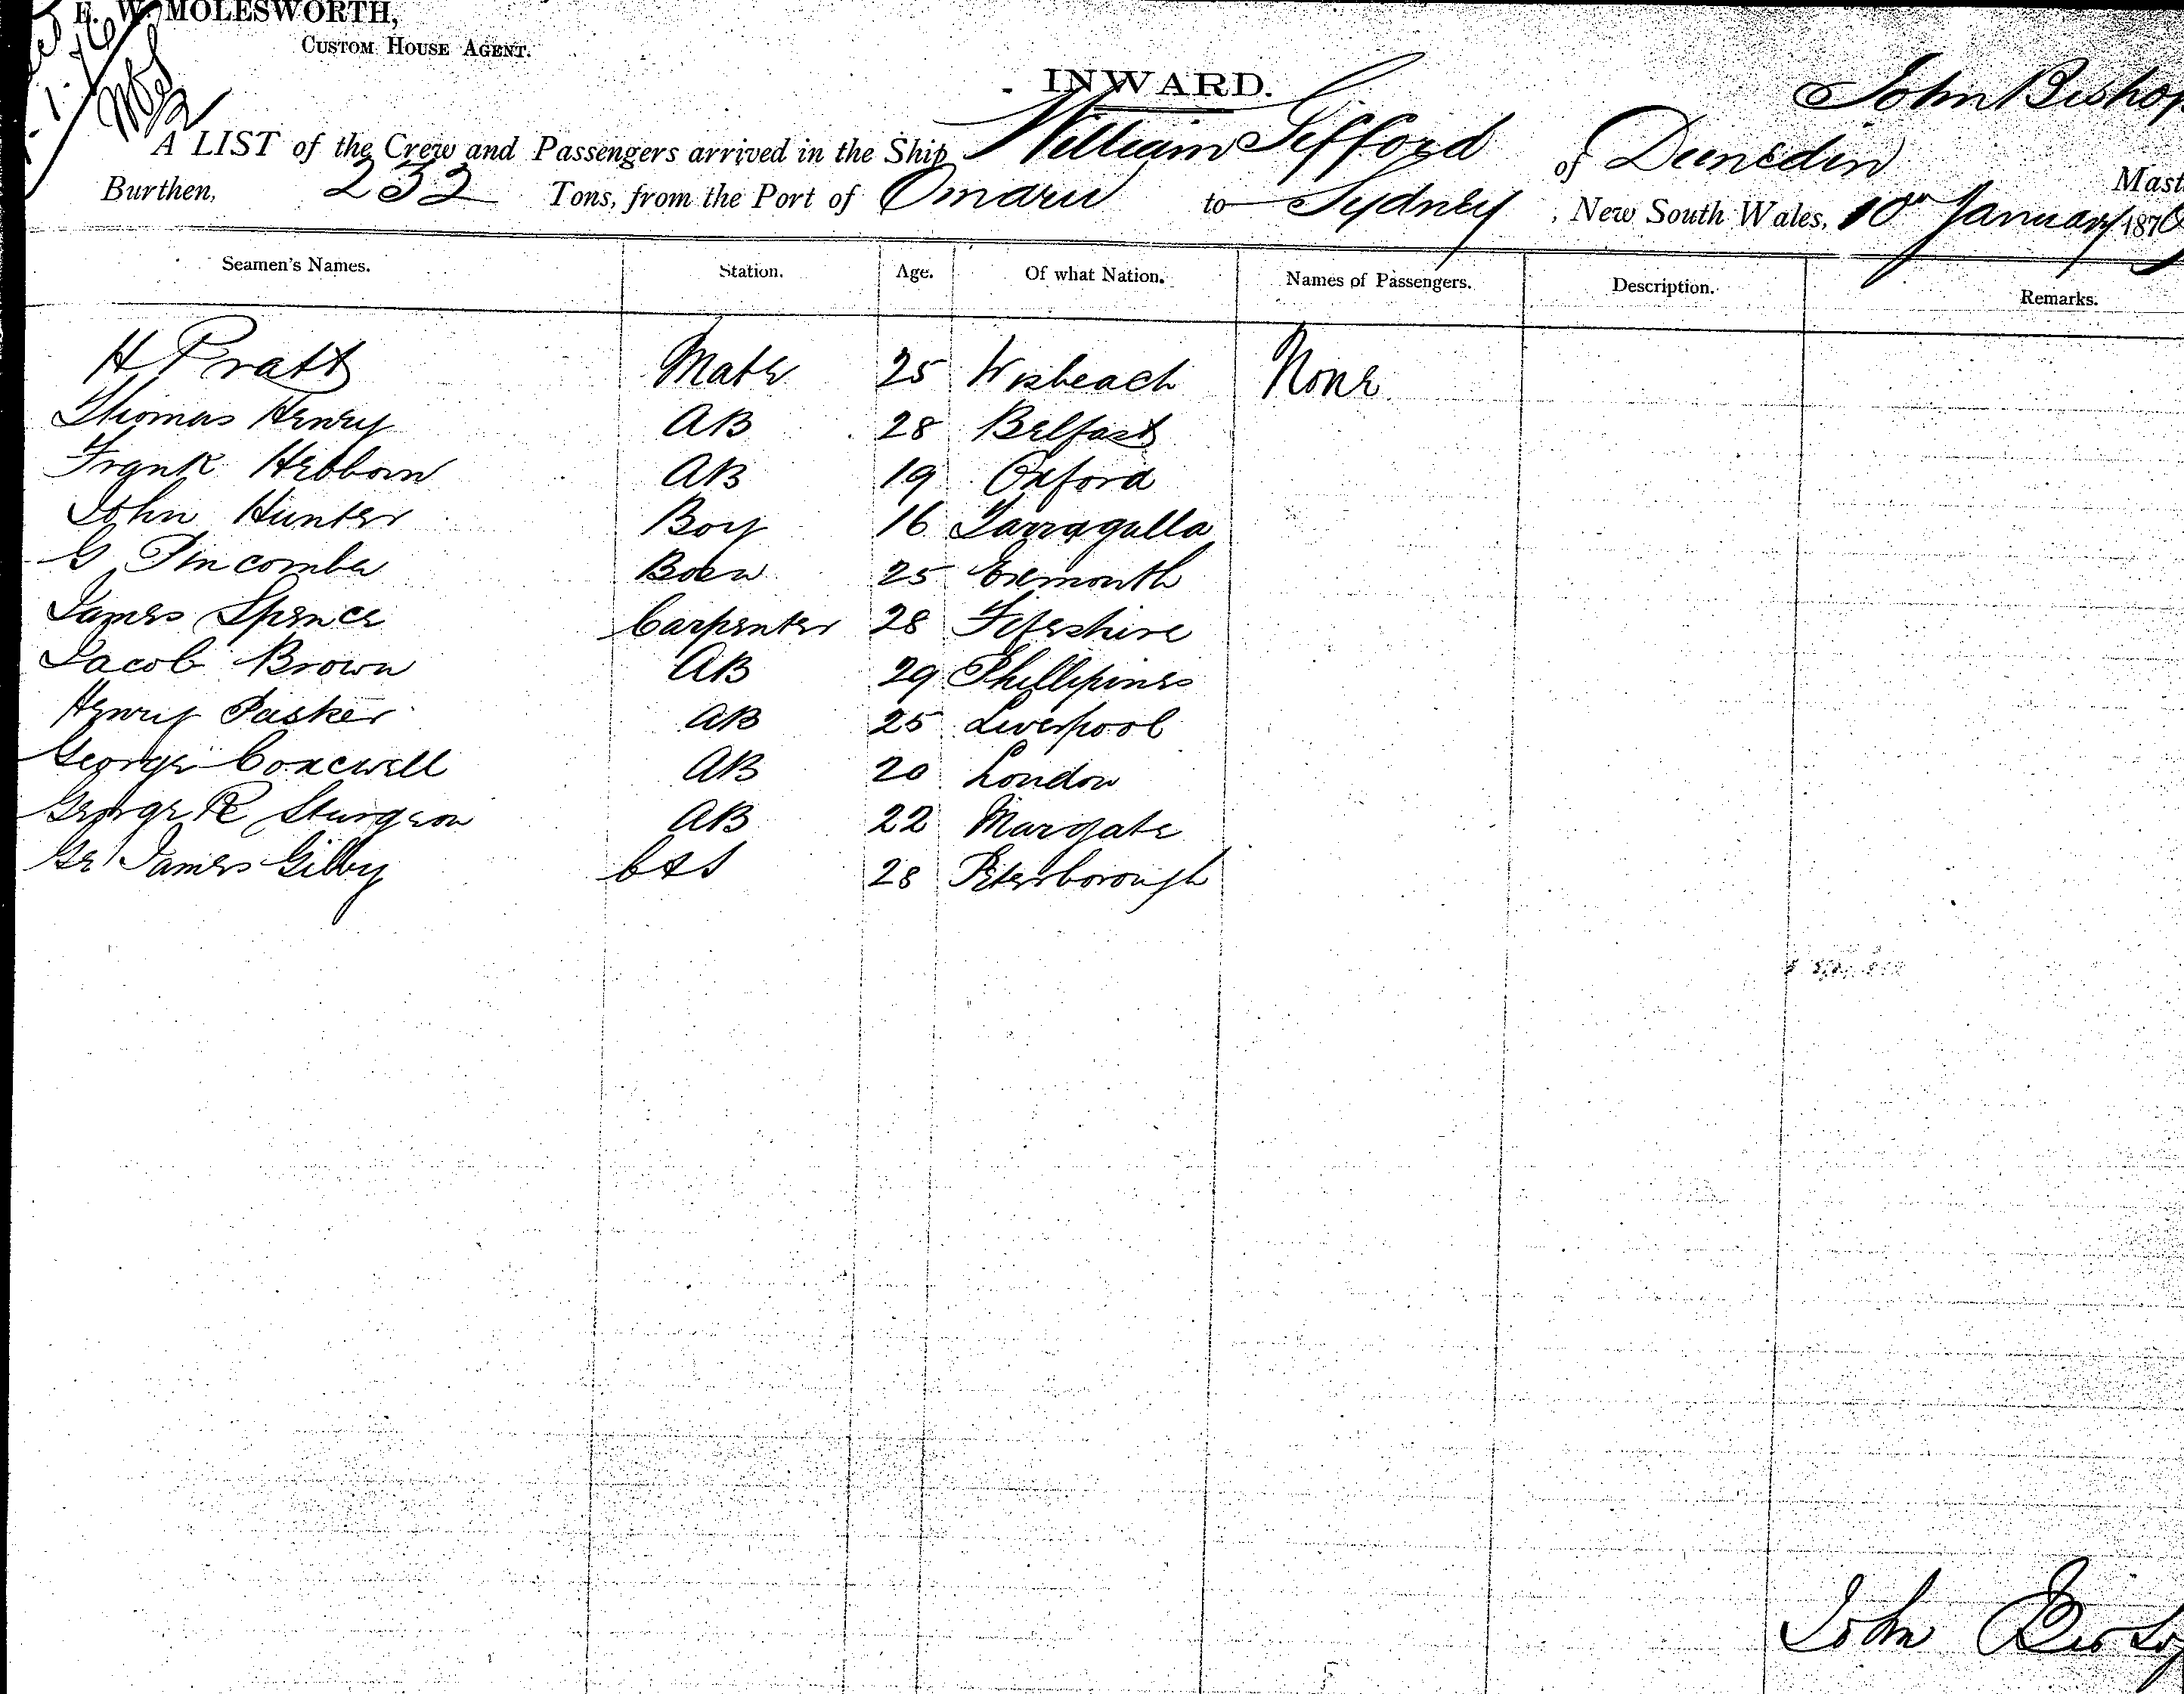 E. W. MOLESWORTH,
CUSTOM HOUSE AGENT.
INWARD.
John Bishop
A LIST of the Crew and Passengers arrived in the Ship William Gifford of Dunedin Mast
Burthen, 232 Tons, from the Port of Omaru to Sydney, New South Wales, 10th January 1876
Seamen's Names. Station. Age. Of what Nation. Names of Passengers. Description. Remarks.
H Pratt Mate 25 Wisbeach None
Thomas Henry AB 28 Belfast
Frank Hebborn AB 19 Oxford
John Hunter Boy 16 Tarragulla
G Pincombe Bosn 25 Exmouth
James Spence Carpenter 28 Fifeshire
Jacob Brown AB 29 Phillipines
Henry Pasker AB 25 Liverpool
George Coxcwell AB 20 London
George R Sturgeon AB 22 Margate
Ge James Gilby C&S 28 Peterborough
John Bishop